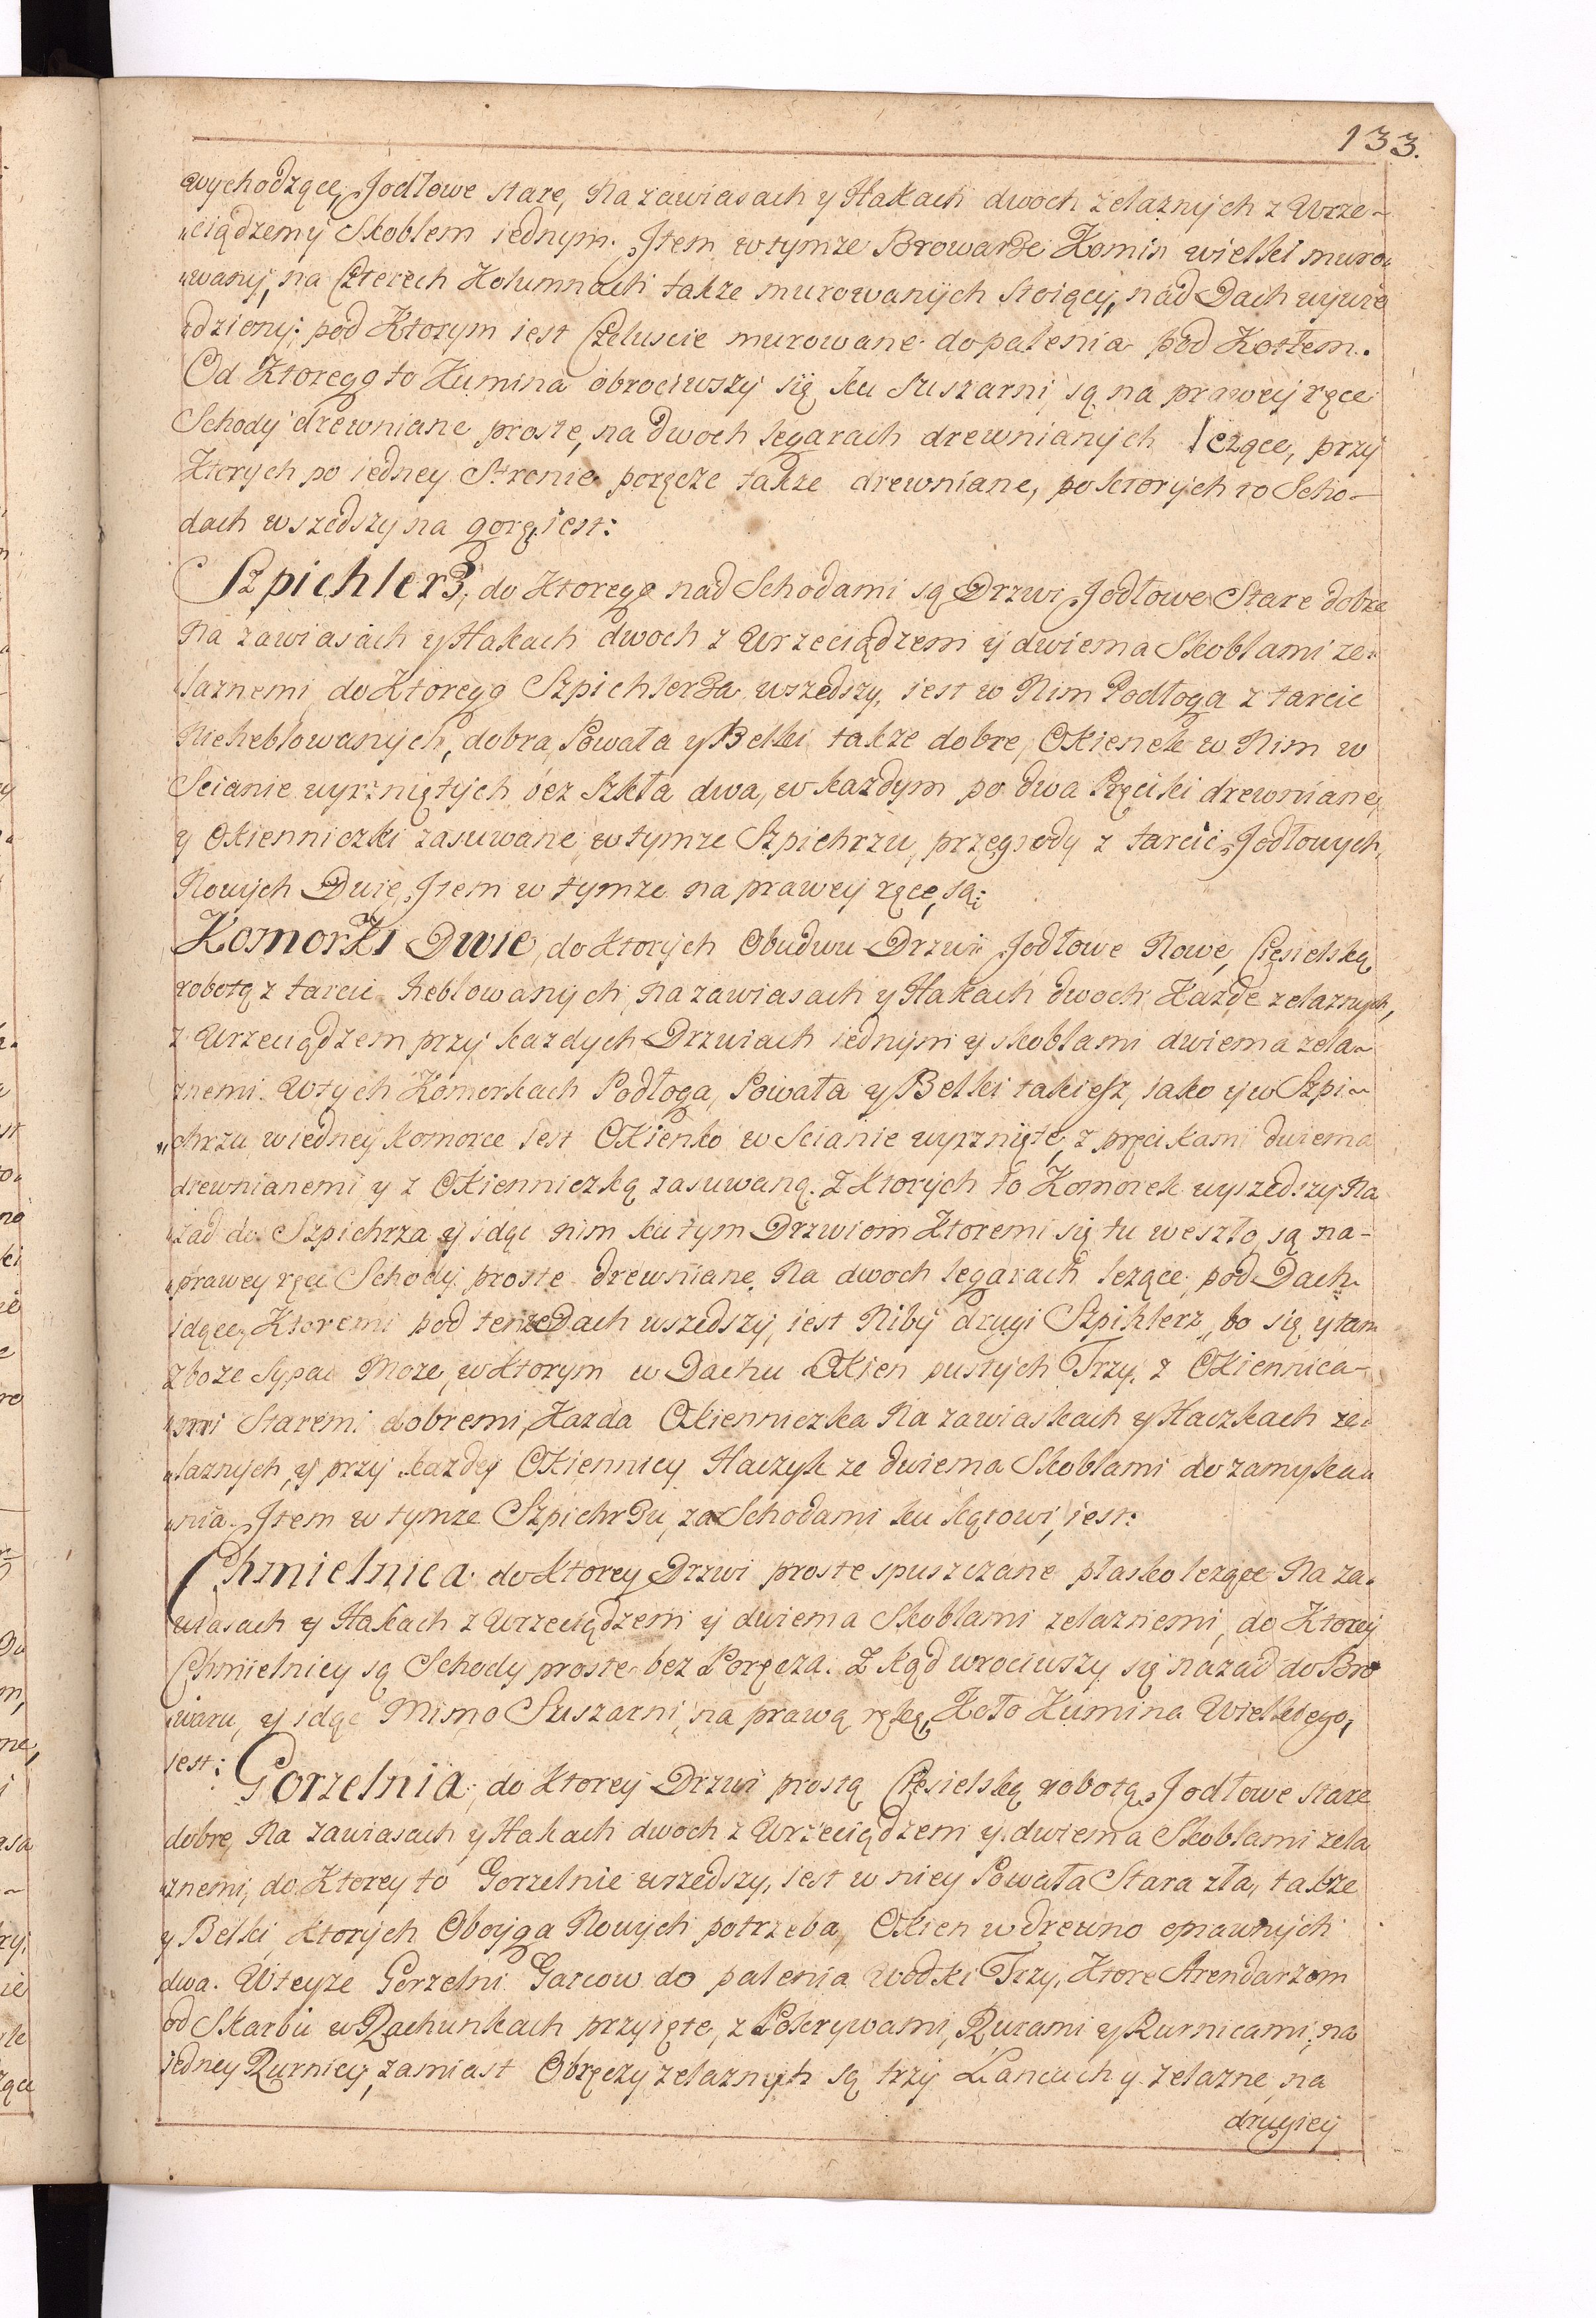 133.
wychodzące, Jodłowe stare, na zawiasach y Hakach dwoch żelaznych z Wrze-
„ciądzemy Skoblem iednym. Jtem w tymze Browarze Komin wielki muro„
„wany, na Czterech Kolumnach także murowanych stoiący, nad Dach wywie
„dziony: pod Ktorym iest Czeluscie murowane do palenia pod Kotłem.
Od Ktorego to Kumina obrociwszy się ku Suszarni, są na prawey ręce
Schody drewniane proste, na dwoch legarach drewnianych leżące, przy
Ktorych po iedney Stronie poręcze także drewniane, po ktorych to Scho-
dach wszedszy na gorę, iest:
Szpichlerz, do Ktorego nad Schodami są Drzwi Jodłowe Stare dobre
na zawiasach y Hakach dwoch z Wrzeciądzem y dwiema Skoblami że„
„laznemi, do Ktorego Szpichlerza wszedszy, iest w Nim Podłoga z tarcic
Nieheblowanych, dobra, Powała y Belki także dobre, Okienek w Nim w
Scianie wyrzniętych bez Szkła dwa, w każdym po dwa Pręciki drewniane,
y Okienniczki zasuwane, w tymze Szpichrzu, przegrody z tarcic Jodłowych,
Nowych Dwie, Jtem w tymze na prawey ręce, są:
Komorki Dwie, do Ktorych Obudwu Drzwi Jodłowe Nowe, Ciesielską
robotą z tarcic heblowanych, na zawiasach y Hakach dwoch Każde zelaznych,
z Wrzeciądzem przy każdych Drzwiach iednym y skoblami dwiema zela-
znemi. W tych Komorkach Podłoga, Powała y Belki takiesz, iako y w Szpi-
„chrzu, w iedney komorce iest Okienko w Scianie wyrznięte, z pręcikami dwiema
drewnianemi y z Okienniczką zasuwaną. Z Ktorych to Komorek wyszedszy Na
„zad do Szpichrza y idąc nim ku tym Drzwiom Ktoremi się tu weszło, są na-
„prawey ręce Schody proste drewniane, Na dwoch legarach leżące, pod Dach
idące, Ktoremi pod tenże Dach wszedszy, iest Niby drugi Szpiklerz, bo się y tam
zboże Sypać Może, w Ktorym w Dachu Okien pustych Trzy, z Okiennica-
„mi Staremi dobremi, Każda Okienniczka Na zawiaskach y Haczkach że„
„laznych, y przy każdey Okiennicy Haczyk ze dwiema Skoblami do zamyka„
„nia. Jtem w tymze Szpichrzu, za Schodami ku kątowi, iest:
Chmielnica do Ktorey Drzwi proste spuszczane płasko leżące Na za„
wiasach y Hakach z Wrzeciądzem y dwiema Skoblami zelaznemi, do Ktorey
Chmielnicy są Schody proste bez Poręcza. Z kąd wrociwszy się nazad do Bro
„waru, y idąc Mimo Suszarni, na prawą rękę, Koło Kumina Wielkiego,
iest: Gorzelnia, do Ktorey Drzwi prostą Ciesielską robotą, Jodłowe stare
dobre, Na zawiasach y Hakach dwoch z Wrzeciądzem y dwiema Skoblami zela
„znemi, do Ktorey to Gorzelnie wszedszy, iest w niey Powała Stara zła, także
y Belki, ktorych Oboyga Nowych potrzeba, Okien w drewno oprawnych
dwa. W teyze Gorzelni Garcow do palenia Wodki Trzy, Ktore Arendarzom
od Skarbu w Rachunkach przyięte, z Pokrywami, Rurami y Rurnicami, na
iedney Rurnicy, zamiast Obręczy zelaznych są trzy Lancuchy zelazne, na
drugiey